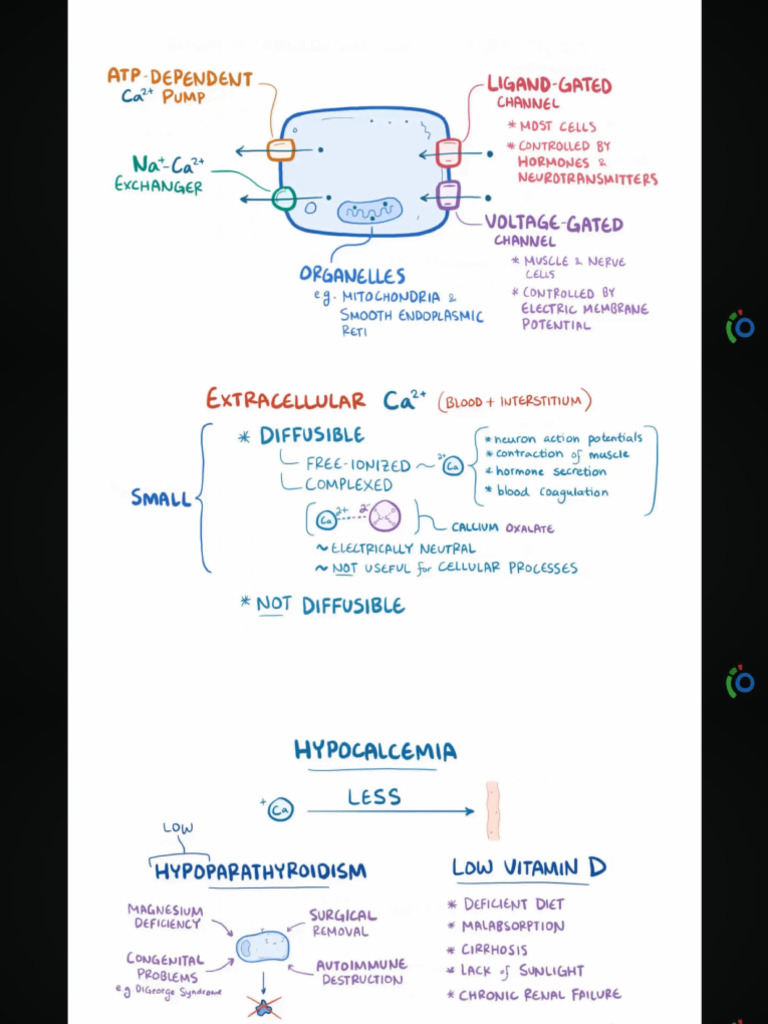 ATP-DEPENDENT
Ca²⁺ PUMP
Na⁺-Ca²⁺
EXCHANGER
LIGAND-GATED
CHANNEL
* MOST CELLS
* CONTROLLED BY
HORMONES &
NEUROTRANSMITTERS
VOLTAGE-GATED
CHANNEL
* MUSCLE & NERVE
CELLS
* CONTROLLED BY
ELECTRIC MEMBRANE
POTENTIAL
ORGANELLES
e.g. MITOCHONDRIA &
SMOOTH ENDOPLASMIC
RETI
EXTRACELLULAR Ca²⁺ (BLOOD + INTERSTITIUM)
SMALL
* DIFFUSIBLE
FREE-IONIZED ~ ²⁺Ca
COMPLEXED
* neuron action potentials
* contraction of muscle
* hormone secretion
* blood coagulation
Ca²⁺ 2⁻
CALCIUM OXALATE
~ ELECTRICALLY NEUTRAL
~ NOT USEFUL for CELLULAR PROCESSES
* NOT DIFFUSIBLE
HYPOCALCEMIA
⁺Ca LESS
LOW
HYPOPARATHYROIDISM
MAGNESIUM
DEFICIENCY
CONGENITAL
PROBLEMS
e.g DiGeorge Syndrome
SURGICAL
REMOVAL
AUTOIMMUNE
DESTRUCTION
LOW VITAMIN D
* DEFICIENT DIET
* MALABSORPTION
* CIRRHOSIS
* LACK of SUNLIGHT
* CHRONIC RENAL FAILURE